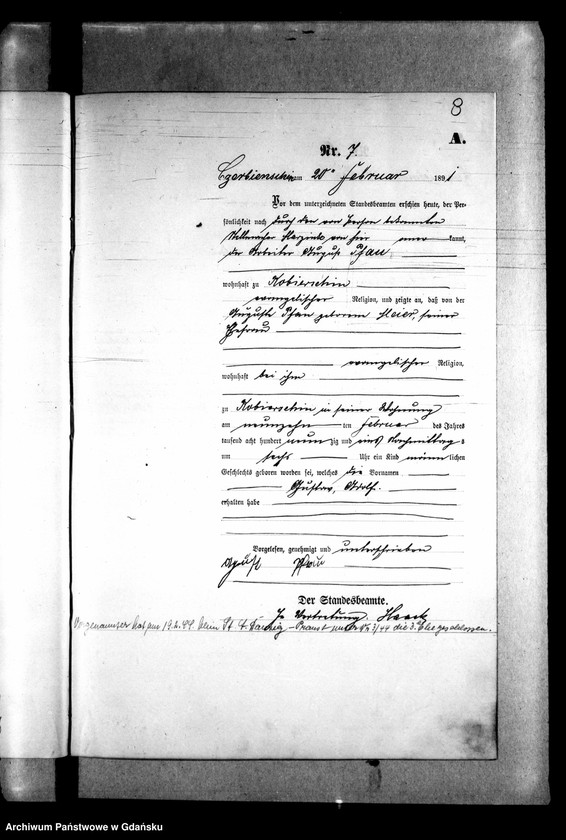 8
A.
Nr. 7
Czerbienschin am 20ten Februar 1891
Vor dem unterzeichneten Standesbeamten erschien heute, der Per-
sönlichkeit nach durch den von Person bekannten
von hier aner kannt,
der Arbeiter August Pfau
wohnhaft zu Kobierschin
evangelischer Religion, und zeigte an, daß von der
Auguste Pfau geborene Meier, seiner
Ehefrau
evangelischer Religion,
wohnhaft bei ihm
zu Kobierschin in seiner Wohnung
am neunzehn ten Februar des Jahres
tausend acht hundert neun zig und eins Nachmittags
um sechs Uhr ein Kind männ lichen
Geschlechts geboren worden sei, welches die Vornamen
Gustav, Adolf.
erhalten habe
Vorgelesen, genehmigt und unterschrieben
August Pfau
Der Standesbeamte.
In Vertretung. Haack
hat am 19.2.44. beim St. A. Danzig - Praust unter Nr. 3/44 die 3. Ehe geschlossen.
Archiwum Państwowe w Gdańsku